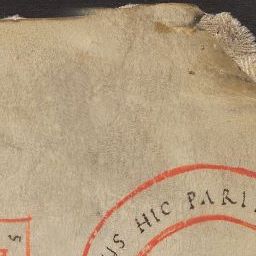 US HIC PARI
S